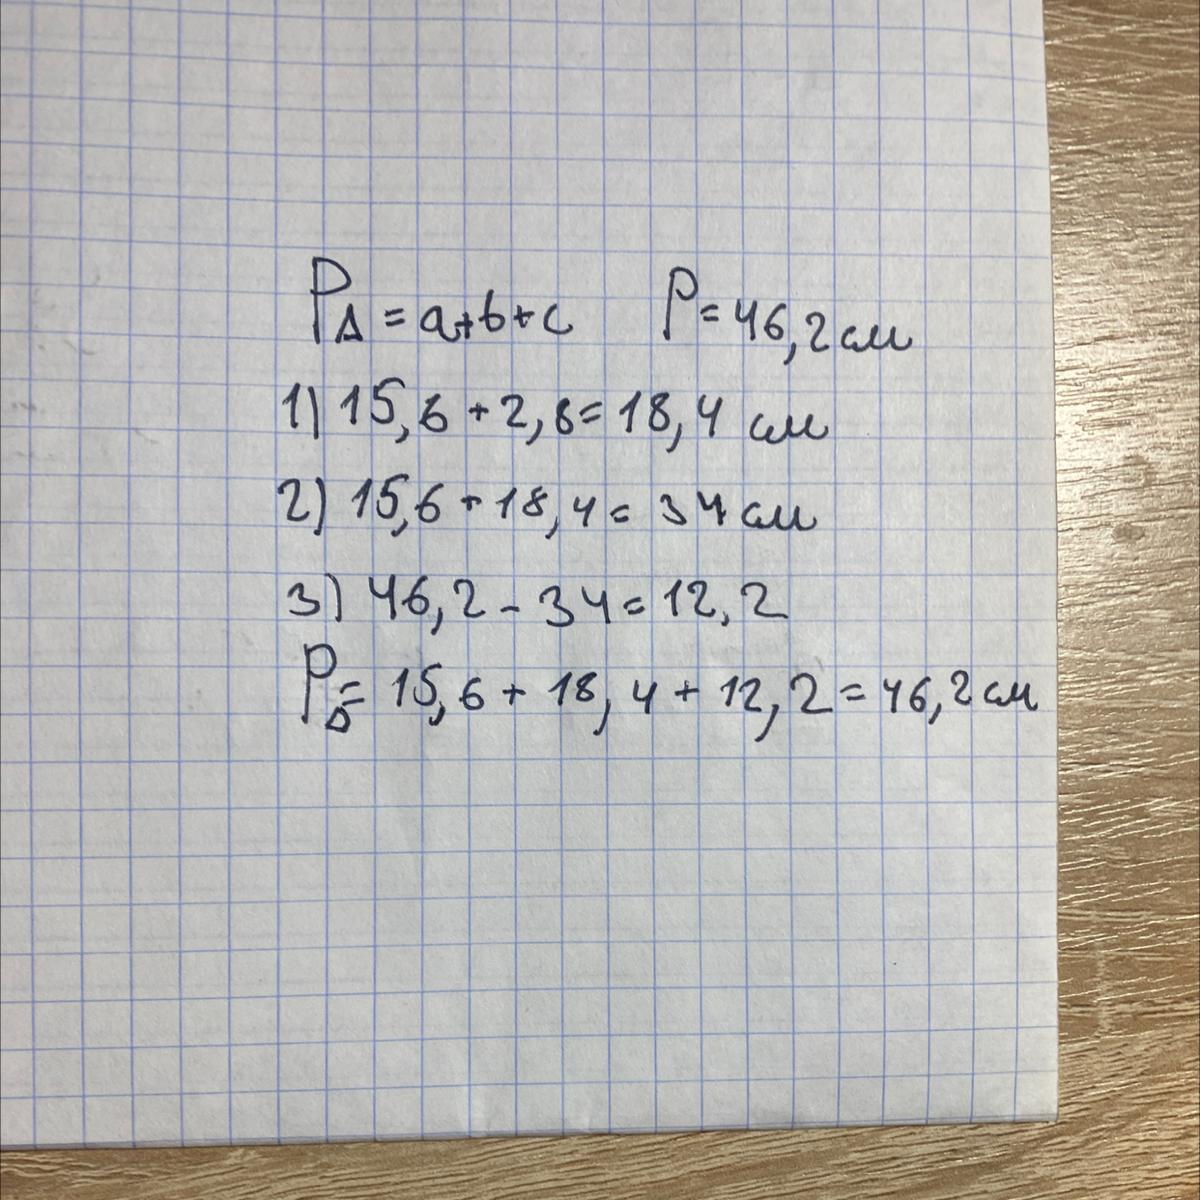 P△ = a+b+c P = 46,2 см
1) 15,6 + 2,8 = 18,4 см
2) 15,6 + 18,4 = 34 см
3) 46,2 - 34 = 12,2
P△ = 15,6 + 18,4 + 12,2 = 46,2 см